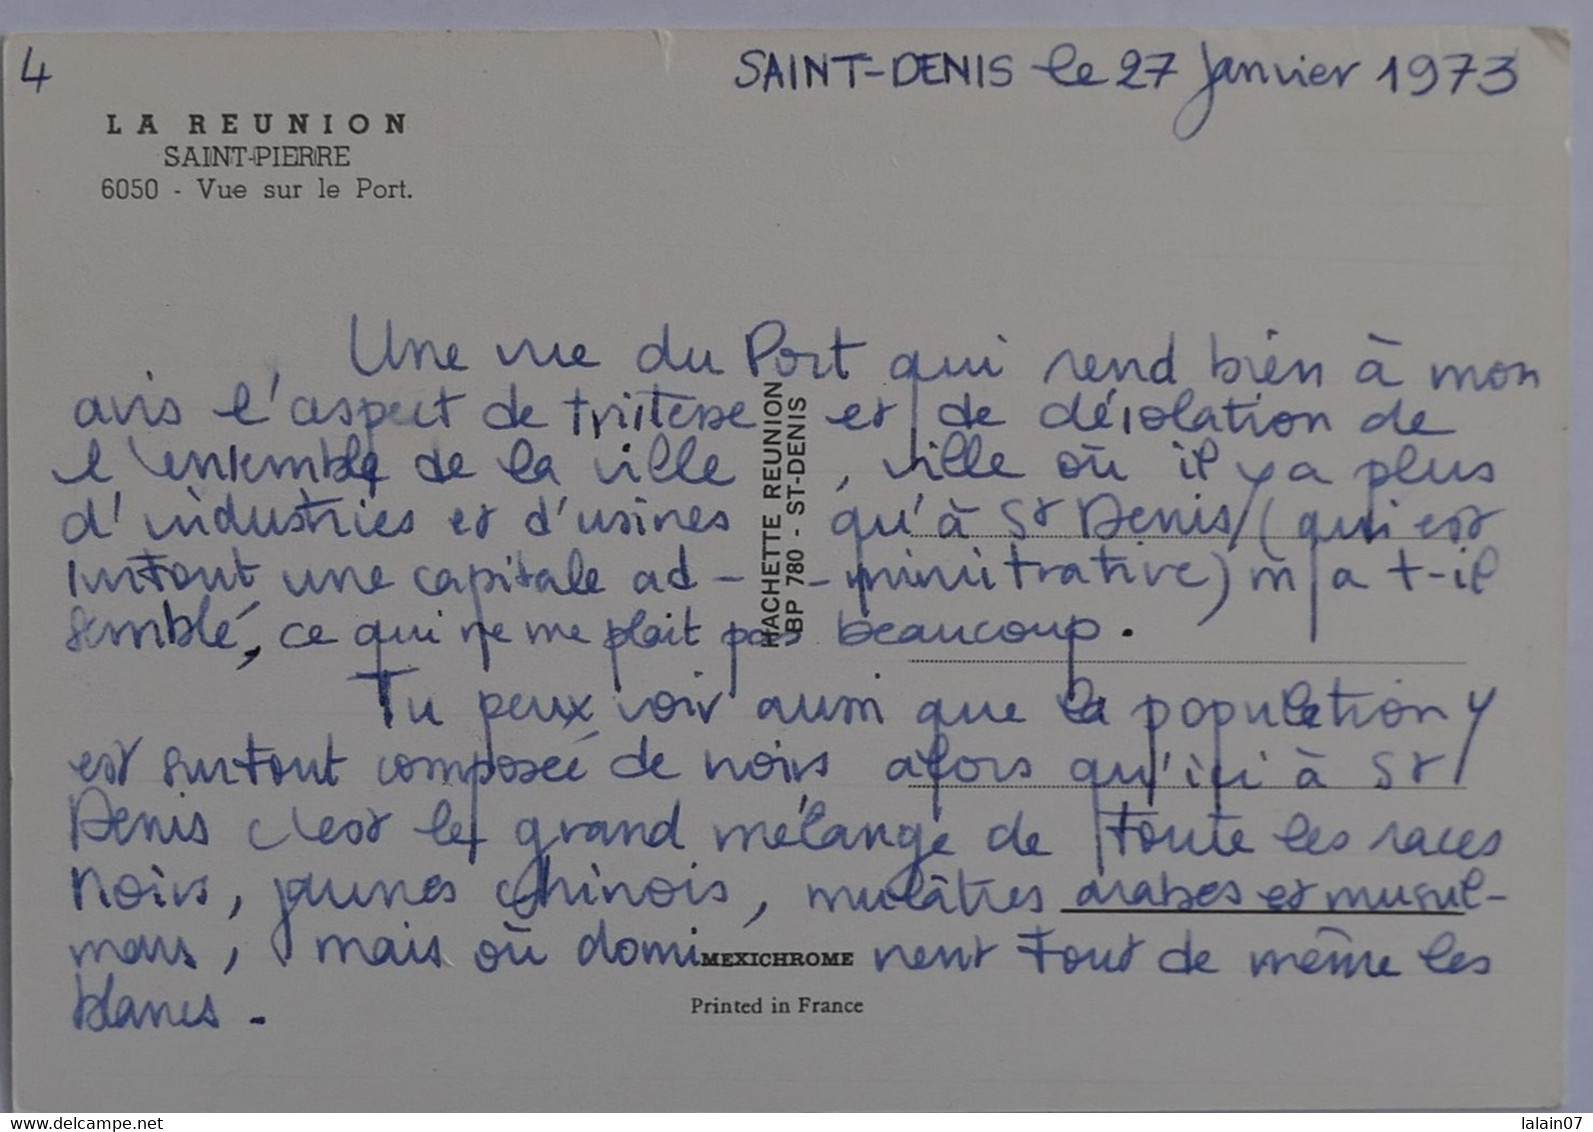 4
SAINT-DENIS le 27 Janvier 1973
LA REUNION
SAINT-PIERRE
6050 - Vue sur le Port.
Une vue du Port qui rend bien à mon
avis l'aspect de tristesse et de désolation de
l'ensemble de la ville, ville où il y a plus
d'industries et d'usines qu'à St Denis (qui est
surtout une capitale ad- -ministrative) m'a t-il
semblé, ce qui ne me plait pas beaucoup.
Tu peux voir aussi que la population y
est surtout composée de noirs alors qu'ici à St
Denis c'est le grand mélange de toute les races
Noirs, jaunes chinois, mulâtres arabes et musul-
mans, mais où domi nent tout de même les
blancs.
HACHETTE REUNION
BP 780 - ST-DENIS
MEXICHROME
Printed in France
delcampe.net
lalain07